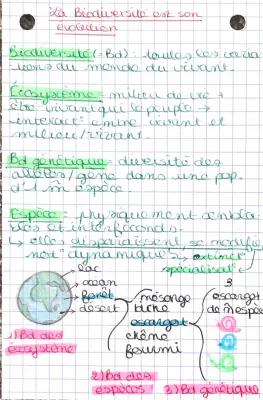 La Biodiversité et son
évolution
Biodiversité (=Bd) : toutes les varia
tions du monde du vivant.
Écosystème = milieu de vie +
être vivant qui la peuple →
interact° entre vivant et
milieu/vivant.
Bd génétique = diversité des
allèles/gène dans une pop.
d'1 m espèce.
Espèce = physiquement sembla
bles et interféconds.
↳ elles disparaissent, se modifie
not° "dynamique" → extinct°
spécialisat°
lac
océan
forêt
désert
mésange
biche
escargot
chêne
fourmi
3
escargot
de m espèce
1) Bd des
écosystème
2) Bd des
espèces
3) Bd génétique